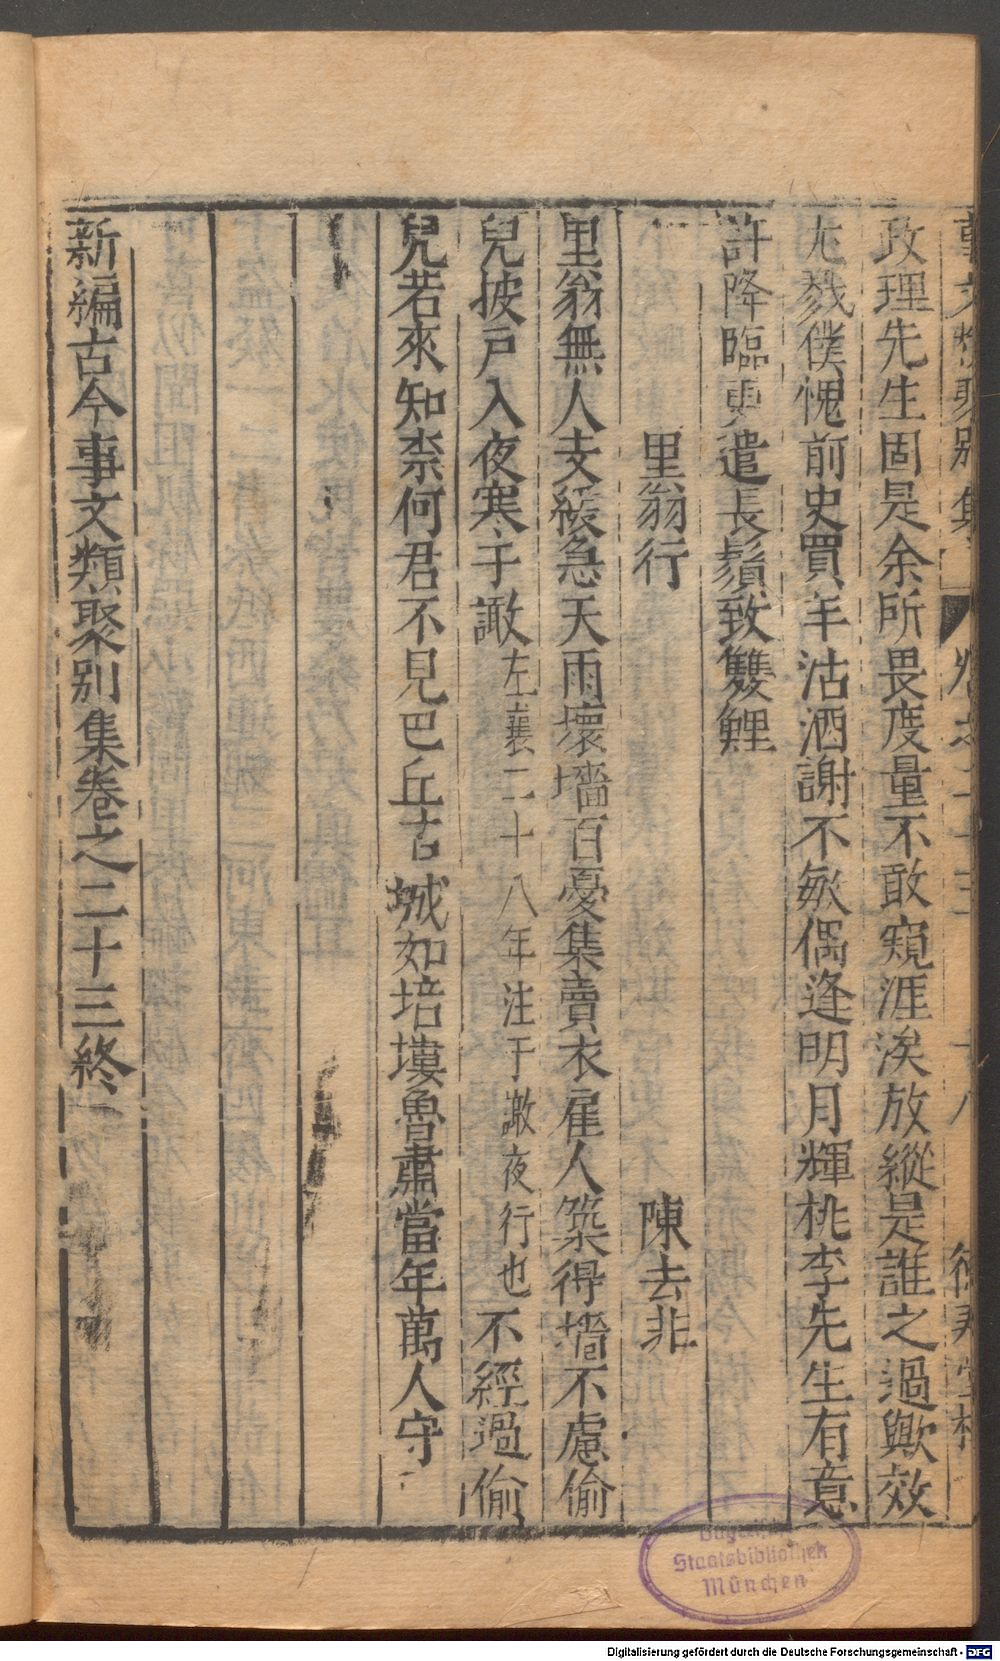 政理先生固是余所畏度量不敢窺涯涘放縱是誰之過歟效
尤戮僕愧前史買羊沽酒謝不敏偶逢明月輝桃李先生有意
許降臨更遣長鬚致雙鯉
里翁行 陳去非
里翁無人支緩急天雨壞墻百憂集賣衣雇人築得墻不慮偷
兒披戶入夜寒干諏左襄二十八年注于諏夜行也不經過偷
兒若來知柰何君不見巴丘古城如培塿魯肅當年萬人守
新編古今事文類聚別集卷之二十三終
Bayerische
Staatsbibliothek
München
Digitalisierung gefördert durch die Deutsche Forschungsgemeinschaft - DFG